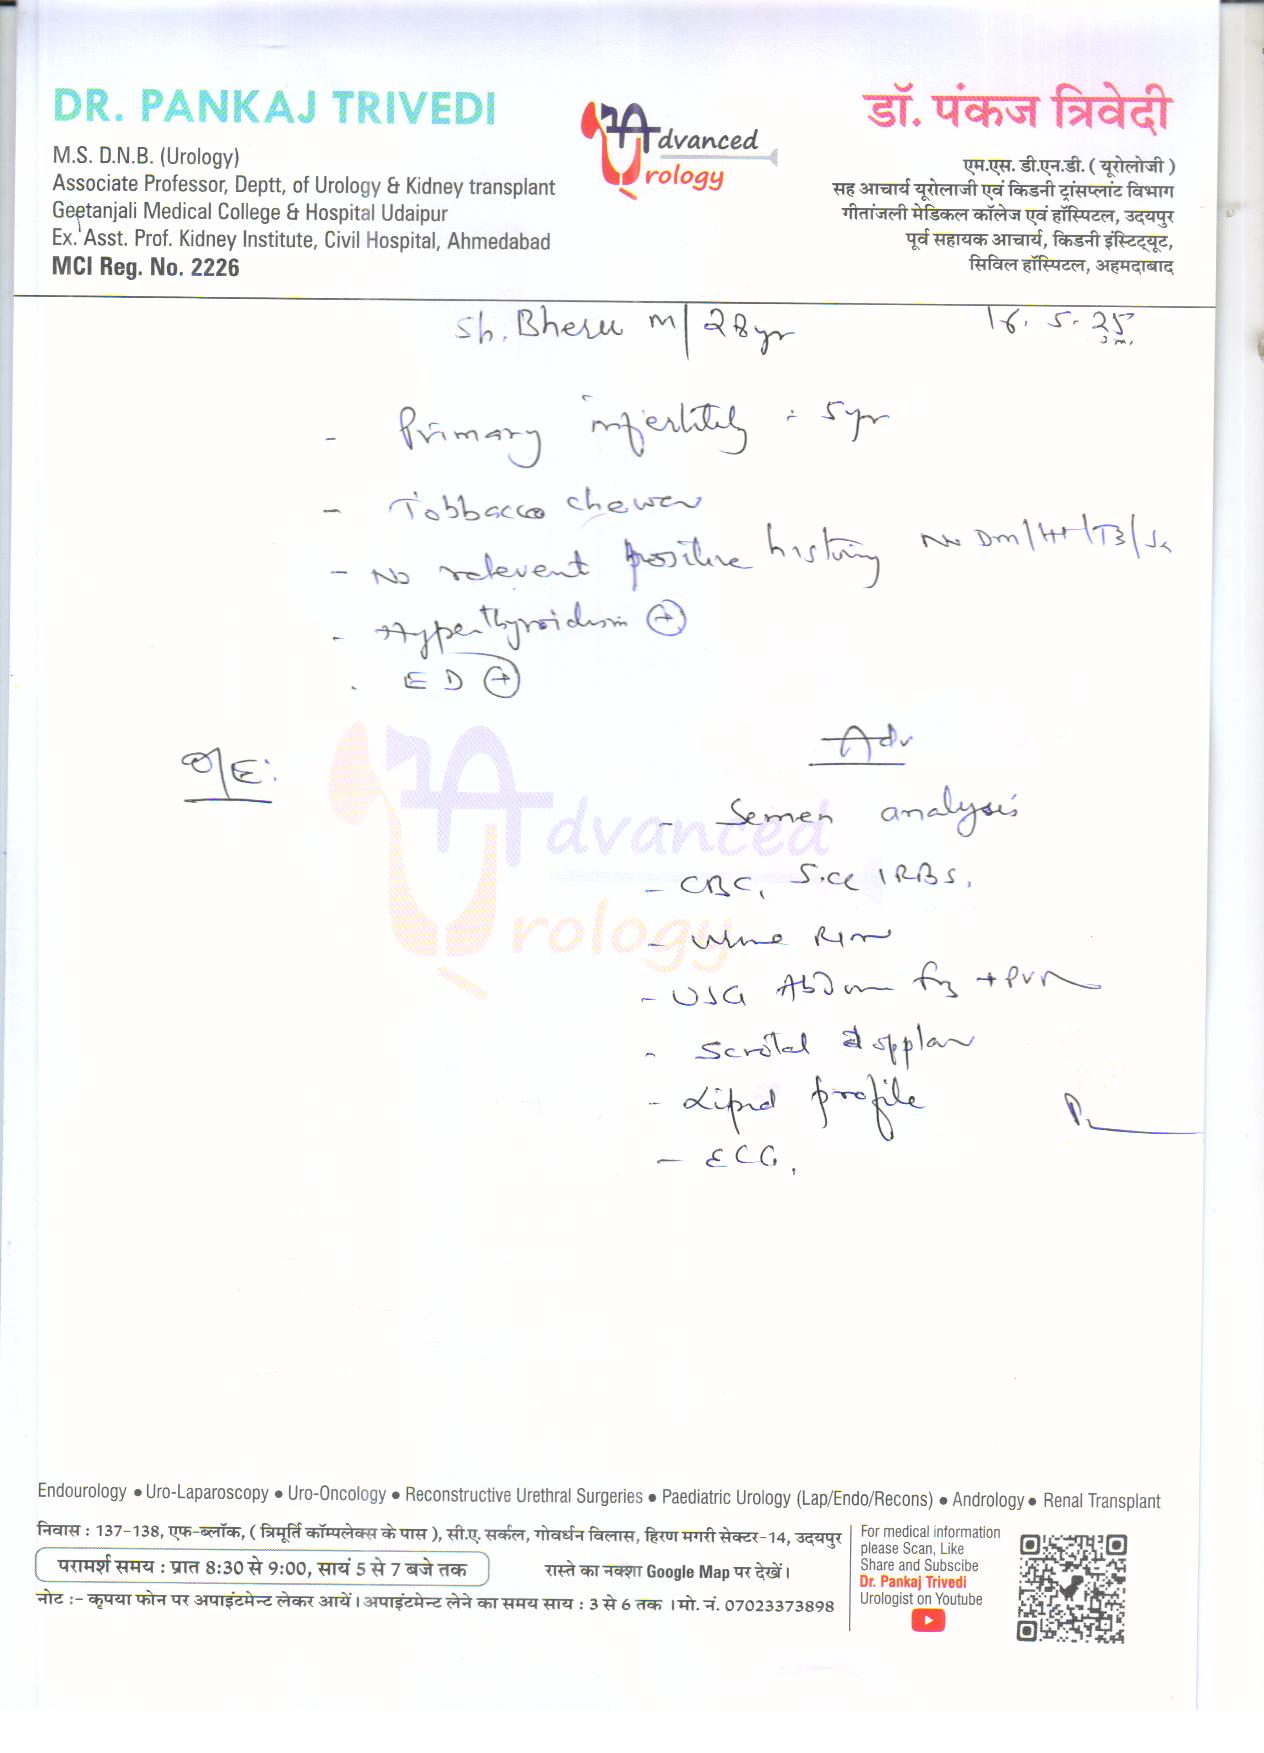 DR. PANKAJ TRIVEDI
M.S. D.N.B. (Urology)
Associate Professor, Deptt, of Urology & Kidney transplant
Geetanjali Medical College & Hospital Udaipur
Ex. Asst. Prof. Kidney Institute, Civil Hospital, Ahmedabad
MCI Reg. No. 2226
Advanced
Urology
डॉ. पंकज त्रिवेदी
एम.एस. डी.एन.डी. ( यूरोलोजी )
सह आचार्य यूरोलाजी एवं किडनी ट्रांसप्लांट विभाग
गीतांजली मेडिकल कॉलेज एवं हॉस्पिटल, उदयपुर
पूर्व सहायक आचार्य, किडनी इंस्टिट्यूट,
सिविल हॉस्पिटल, अहमदाबाद
Sh. Bheru M/28yr 16.5.25
- Primary infertility : 5yr
- Tobbacco chewer
- No relevent positive history No DM/HT/TB/
- Hyperthyroidism (+)
. ED (+)
O/E:
Adv
- Semen analysis
- CBC, S.cr, RBS,
- Urine R/m
- USG Abdom + PVR
- Scrotal doppler
- Lipid profile
- ECG,
Advanced
Urology
Endourology • Uro-Laparoscopy • Uro-Oncology • Reconstructive Urethral Surgeries • Paediatric Urology (Lap/Endo/Recons) • Andrology • Renal Transplant
निवास : 137-138, एफ-ब्लॉक, ( त्रिमूर्ति कॉम्पलेक्स के पास ), सी.ए. सर्कल, गोवर्धन विलास, हिरण मगरी सेक्टर-14, उदयपुर
परामर्श समय : प्रात 8:30 से 9:00, सायं 5 से 7 बजे तक रास्ते का नक्शा Google Map पर देखें।
नोट :- कृपया फोन पर अपाइंटमेन्ट लेकर आयें। अपाइंटमेन्ट लेने का समय साय : 3 से 6 तक । मो. नं. 07023373898
For medical information
please Scan, Like
Share and Subscibe
Dr. Pankaj Trivedi
Urologist on Youtube